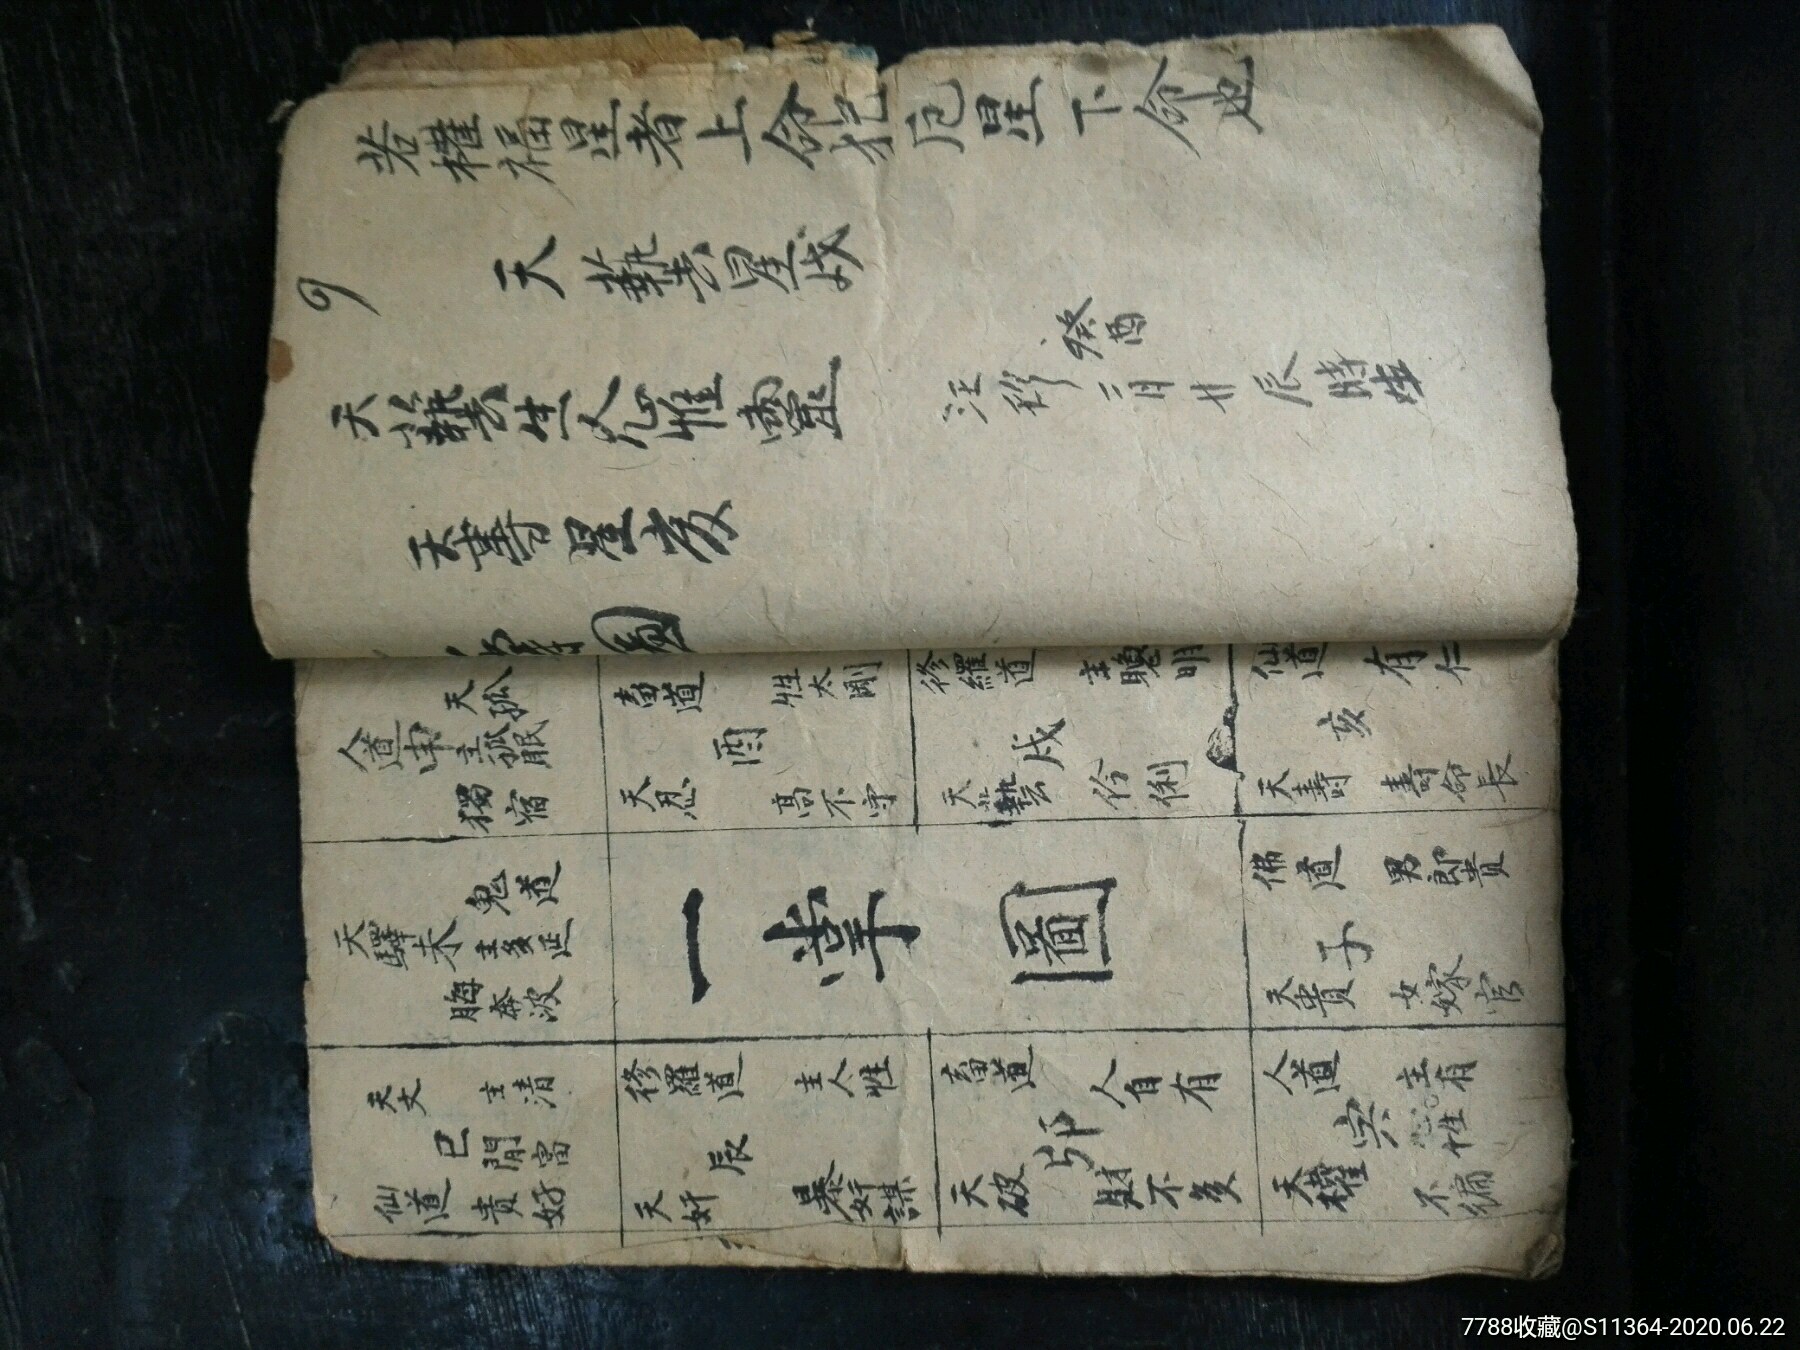 若權福星者上命犯厄星下命也
天藝星戌
癸酉
汪 二月廿 辰時
天藝生人心性靈
天壽星亥
掌圖
人道
申
天孤
主孤眠
獨宿
畜道
酉
天忍
性太剛
高不守
修羅道
戌
天藝
主聰明
伶俐
仙道
亥
天壽
有仁
壽命長
鬼道
未
天驛
主多
奔波
一掌圖
佛道
子
天貴
男郎貴
女嫁官
仙道
巳
天文
主清
閒富
貴好
修羅道
辰
天奸
主人性
暴奸謀
畜道
卯
天破
人自有
財不多
人道
寅
天權
主有
性
不
7788收藏@S11364-2020.06.22